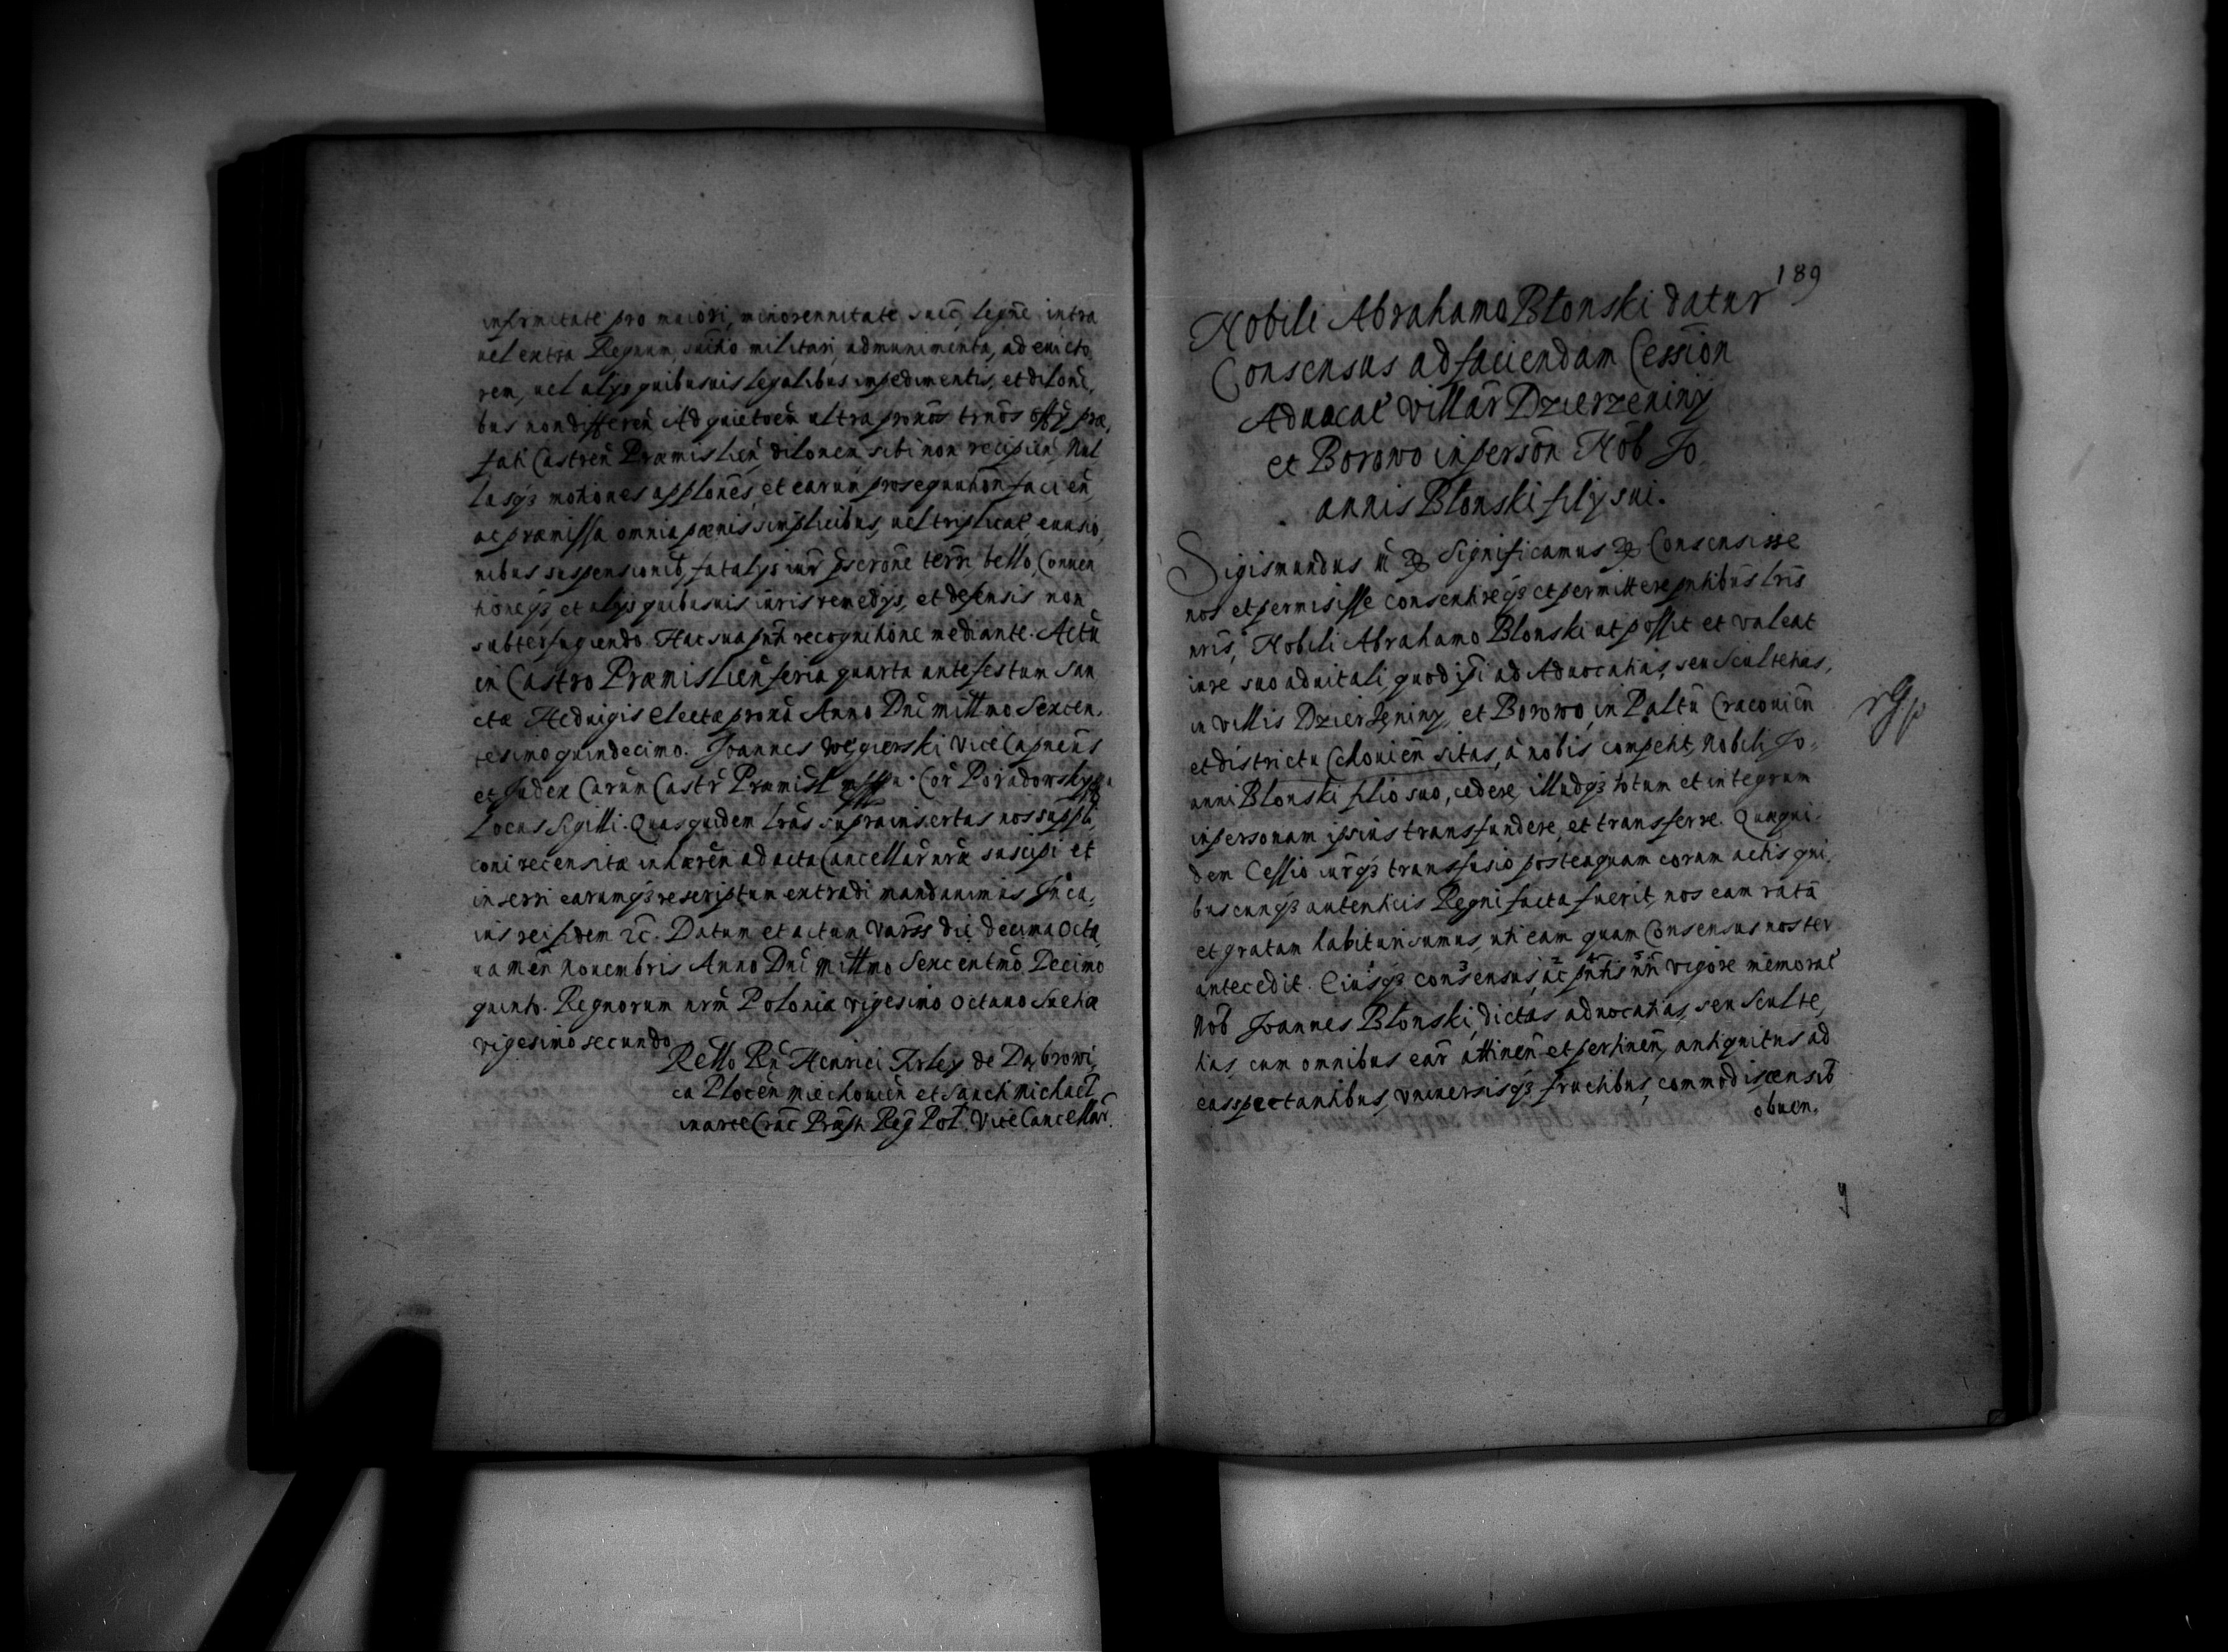 infirmitate pro maiori, minorennitate succ̃, legñe intra
uel extra Regnum, militari, ad munimenta, ad euicto,
rem, uel alys quibusuis legalibus impedimentis, et dilonẽ,
bus non differeñ Ad quietoem̃ ultra pronõs trnõs offỹ præ,
fati Castreñ Præmislieñ, dilonem sibi non recipieñ, Nul
lasq3 motiones applonẽs, et earum prosequutioñ facieñ,
ac præmissa omnia pænis simplicibus, uel triplicat̃, euasio,
nibus suspensionib̃, fatalys iur̃ terr̃ bello, Conuen
tioneq3, et alys quibusuis iuris remedys, et defensis non
subterfugiendo. Hac sua pñti recognitione mediante. Actũ
in Castro Præmislieñ feria quarta ante festum San,
ctæ Heduigis Electæ pronã Anno Dnĩ millmo Sexcen,
tesimo quindecimo. Joannes Węgierski Vice Capneũs
et Judex Caruñ Castr̃ Præmisl Cor̃ Poradowsky
Locus Sigilli. Quas quidem lrãs supra insertas nos suppli,
coni recensitæ inhæreñ ad acta Cancellar̃ nr̃æ suscipi et
inseri earumq3 rescriptum extradi mandauimus In cu,
ius rei fidem 2c̃. Datum et actum Vars̃ die decima octa
ua meñ Nouembris Anno Dnĩ Millmo Sexcentmõ, Decimo
quinto. Regnorum nr̃m Poloniæ vigesimo octauo Sueciæ
vigesimo secundo.
Rello Rñ Henrici Firley de Dąbrowi,
ca Ploceñ Miechouieñ et Sancti Michael
in arce Crac̃ Præpti Reg̃ Pol̃ Vice Cancellar̃.
189
Nobili Abrahamo Błonski datur
Consensus ad faciendam Cession̄
Aduocat̃ Villar̃ Dzierzeniny
et Borowo in person̄ Nob̃ Jo,
annis Błonski fily sui.
Sigismundus III Significamus Consensisse
nos et permisisse consentireq3 et permittere pñtibus lrĩs
nrĩs, Nobili Abrahamo Błonski ut possit et valeat
iure suo aduitali, quod ipi ad Aduocatias, seu Scultetias,
in villis Dzierżeniny et Borowo, in Paltũ Cracouieñ
et districtu sitas, à nobis competit, Nobili Jo,
anni Błonski filio suo, cedere, illudq3 totum et integrum
in personam ipsius transfundere, et transferre. Quæqui,
dem Cessio iurq̃3 transfusio posteaquam coram actis qui,
buscunq3 autenticis Regni facta fuerit, nos eam ratã
et gratam habituri sumus, uti eam quam Consensus noster
antecedit. Eiusq3 consensus, ac̃ pñtis nr̃i vigore memorat̃
Nob̃ Joannes Błonski, dictas aduocatias, seu Sculte,
tias, cum omnibus ear̃ attineñ et pertineñ, antiquitus ad
eas spectantibus, vniuersisq3 fructibus, commodis, censib̃
obuen,